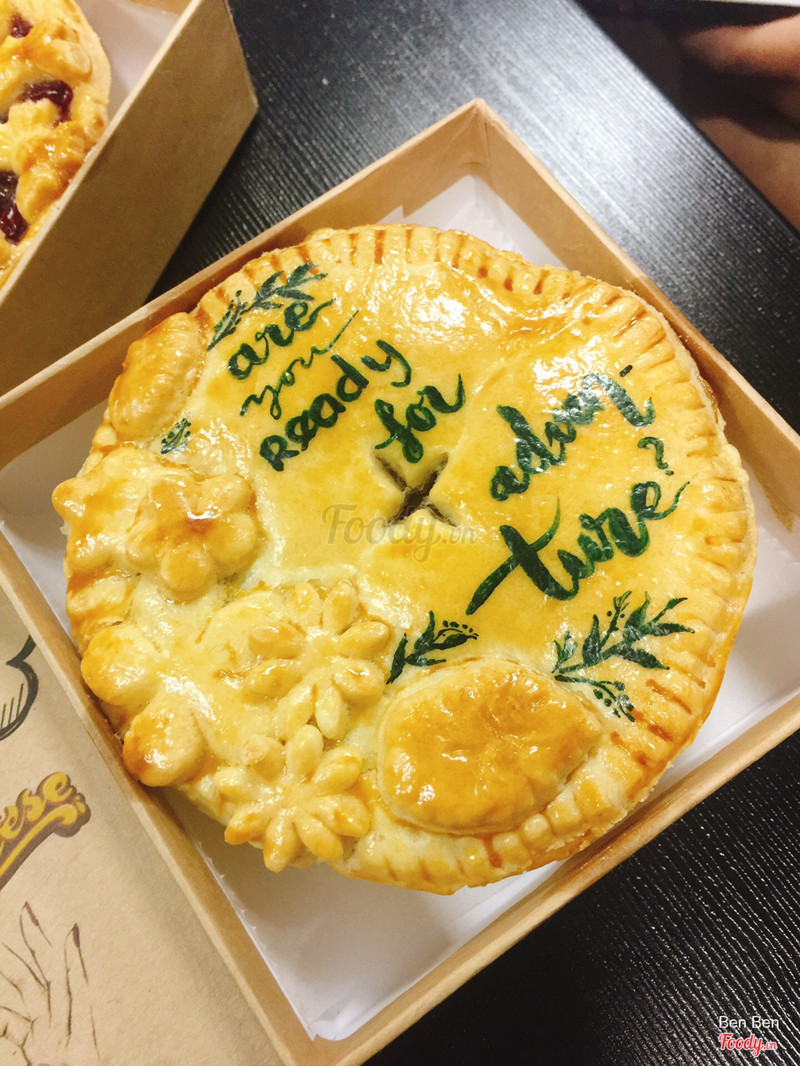 are
you
Ready
for
adven
ture?
Foody.vn
Ben Ben
Foody.vn